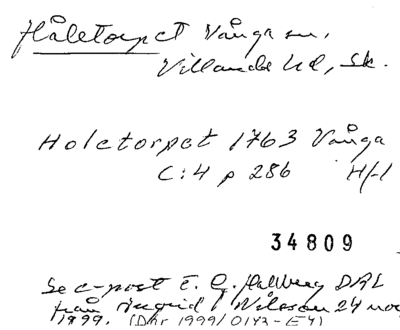 Håletorpet Vånga sn,
Villands hd, Sk.
Holetorpet 1763 Vånga
C:4 p 286 Hfl
34809
Se e-post t. G. Hallberg DAL
från Ingrid Nilsson 24 nov
1999. (Dnr 1999/0143-E4)